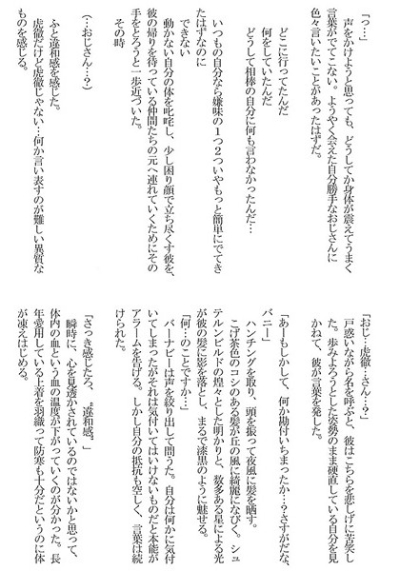 「っ…」
　声をかけようと思っても、どうしてか身体が震えてうまく
言葉がでてこない。ようやく会えた自分勝手なおじさんに
色々言いたいことがあったはずだ。
　どこに行ってたんだ
　何をしていたんだ
　どうして相棒の自分に何も言わなかったんだ…
　いつもの自分なら嫌味の１つ２ついやもっと簡単にでてき
たはずなのに
　できない
　動かない自分の体を叱咤し、少し困り顔で立ち尽くす彼を、
彼の帰りを待っている仲間たちの元へ連れていくためにその
手をとろうと一歩近づいた。
　その時
（…おじさん…？）
　ふと違和感を感じた。
　虎徹だけど虎徹じゃない…何か言い表すのが難しい異質な
ものを感じる。
「おじ…虎徹…さん…？」
　戸惑いながら名を呼ぶと、彼はこちらを悲しげに苦笑し
た。歩みよろうとした姿勢のまま硬直している自分を見
かねて、彼が言葉を発した。
「あーもしかして、何か勘付いちまったか…？さすがだな、
バニー」
　ハンチングを取り、頭を振って夜風に髪を晒す。
　こげ茶色のコシのある髪が丘の風に綺麗になびく。シュ
テルンビルドの煌々とした明かりと、数多ある星による光
が彼の髪に影を落とし、まるで漆黒のように魅せる。
「何…のことですか…」
　バーナビーは声を絞り出して問うた。自分は何かに気付
いてしまったがそれは気付いてはいけないものだと本能が
アラームを告げる。しかし自分の抵抗も空しく、言葉は続
けられた。
「さっき感じたろ、〝違和感〟」
　瞬時に、心を見透かされているのではないかと思って、
体内の血という血の温度が下がっていくのが分かった。長
年愛用している上着を羽織って防寒も十分だというのに体
が凍えはじめる。